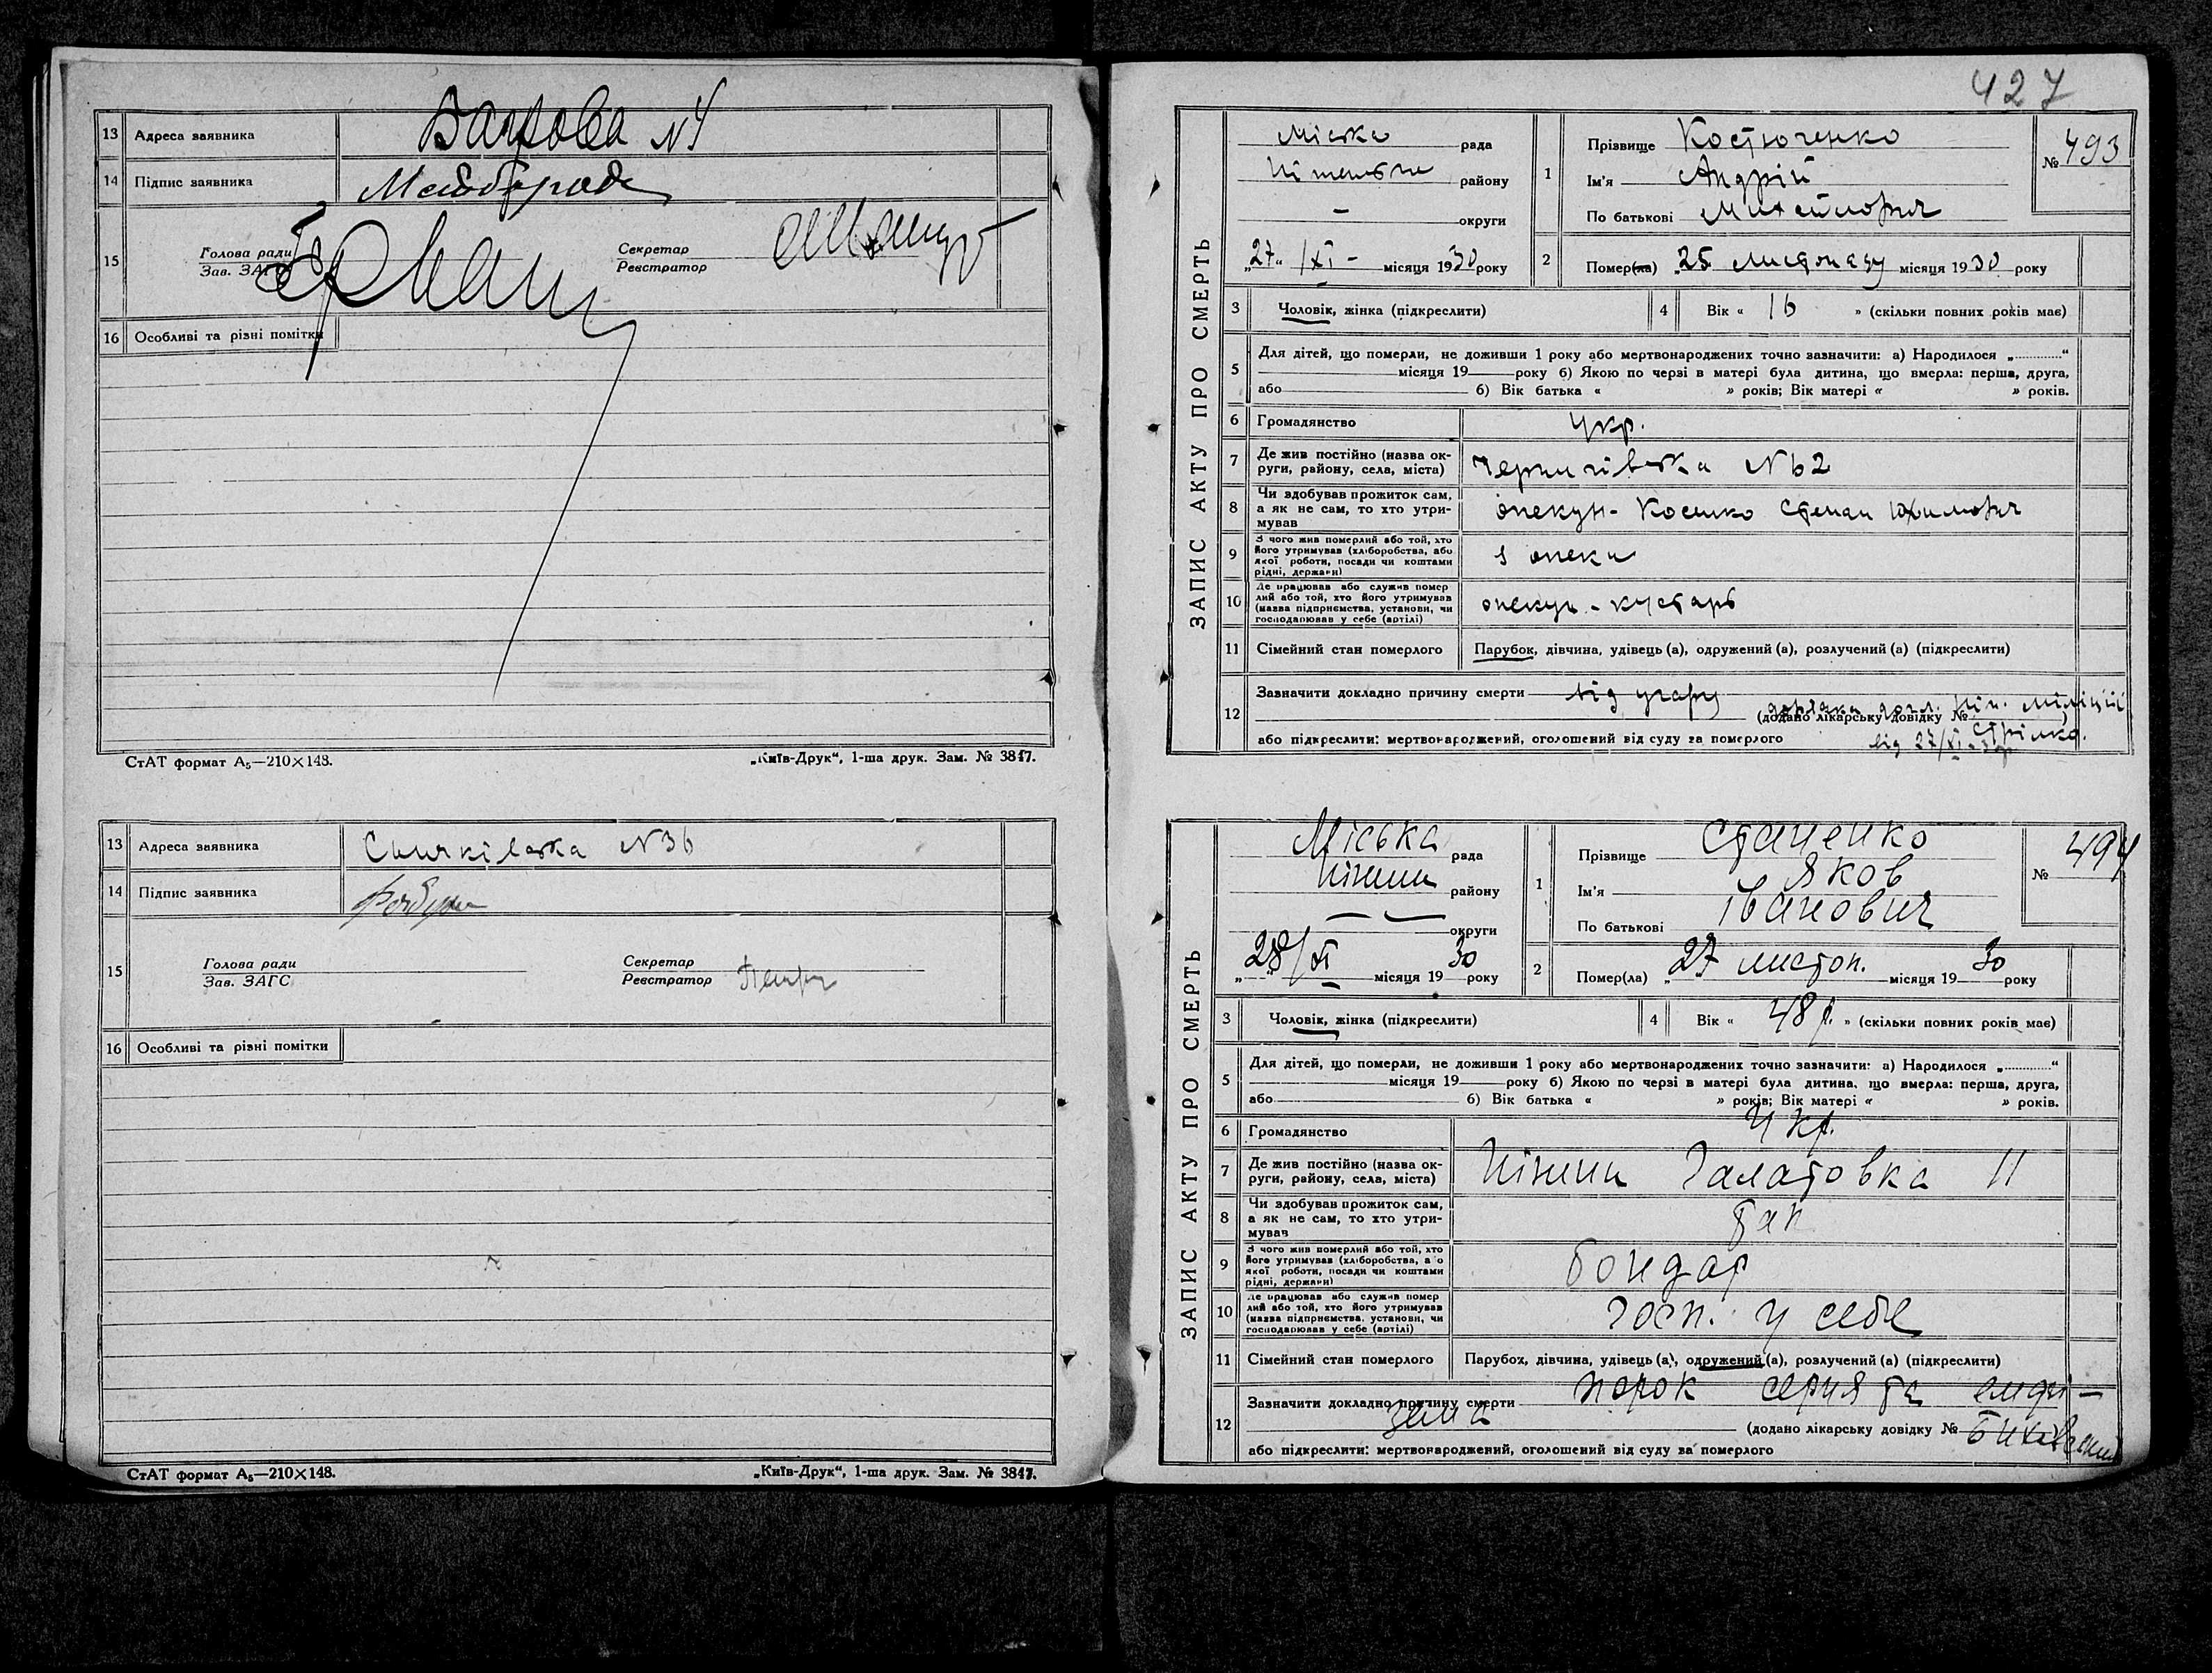 13 Адреса заявника № 4
14 Підпис заявника
15 Голова ради Секретар
Зав. ЗАГС Реєстратор
16 Особливі та різні помітки
СтАТ формат А₅—210×148. „Київ-Друк“, 1-ша друк. Зам. № 3847.
13 Адреса заявника № 36
14 Підпис заявника
15 Голова ради Секретар
Зав. ЗАГС Реєстратор
16 Особливі та різні помітки
СтАТ формат А₅—210×148. „Київ-Друк“, 1-ша друк. Зам. № 3847.
427
ЗАПИС АКТУ ПРО СМЕРТЬ
Міська рада
району
— округи
„27“ /XI - місяця 1930 року
1 Прізвище Костюченко № 493
Ім'я Андрій
По батькові Михайлович
2 Помер(ла) 25 листопаду місяця 1930 року
3 Чоловік, жінка (підкреслити) 4 Вік « 16 » (скільки повних років має)
5 Для дітей, що померли, не доживши 1 року або мертвонароджених точно зазначити: а) Народилося „............“
місяця 19 року б) Якою по черзі в матері була дитина, що вмерла: перша, друга,
або б) Вік батька « » років; Вік матері « » років.
6 Громадянство укр.
7 Де жив постійно (назва округи, району, села, міста) Чернигівська № 62
8 Чи здобував прожиток сам, а як не сам, то хто утримував опекун - Степан
9 З чого жив померлий або той, хто його утримував (хліборобства, або якої роботи, посади чи коштами рідні, держави) з опеки
10 Де працював або служив померлий або той, хто його утримував (назва підприємства, установи, чи господарював у себе (артілі) опекун - кустарь
11 Сімейний стан померлого Парубок, дівчина, удівець (а), одружений (а), розлучений (а) (підкреслити)
12 Зазначити докладно причину смерти від угару
(додано лікарську довідку № ) міліції
або підкреслити: мертвонароджений, оголошений від суду за померлого від 27/XI
ЗАПИС АКТУ ПРО СМЕРТЬ
Міська рада
Ніжин району
округи
„28/XI місяця 1930 року
1 Прізвище Стаценко № 494
Ім'я Яков
По батькові Іванович
2 Помер(ла) „27 листоп. місяця 1930 року
3 Чоловік, жінка (підкреслити) 4 Вік « 48 р. » (скільки повних років має)
5 Для дітей, що померли, не доживши 1 року або мертвонароджених точно зазначити: а) Народилося „............“
місяця 19 року б) Якою по черзі в матері була дитина, що вмерла: перша, друга,
або б) Вік батька « » років; Вік матері « » років.
6 Громадянство Укр.
7 Де жив постійно (назва округи, району, села, міста) Ніжин Галатовка 11
8 Чи здобував прожиток сам, а як не сам, то хто утримував так
9 З чого жив померлий або той, хто його утримував (хліборобства, або якої роботи, посади чи коштами рідні, держави) бондар
10 Де працював або служив померлий або той, хто його утримував (назва підприємства, установи, чи господарював у себе (артілі) госп. у себе
11 Сімейний стан померлого Парубок, дівчина, удівець (а), одружений (а), розлучений (а) (підкреслити)
12 Зазначити докладно причину смерти порок серця та емфі-
зема (додано лікарську довідку №
або підкреслити: мертвонароджений, оголошений від суду за померлого